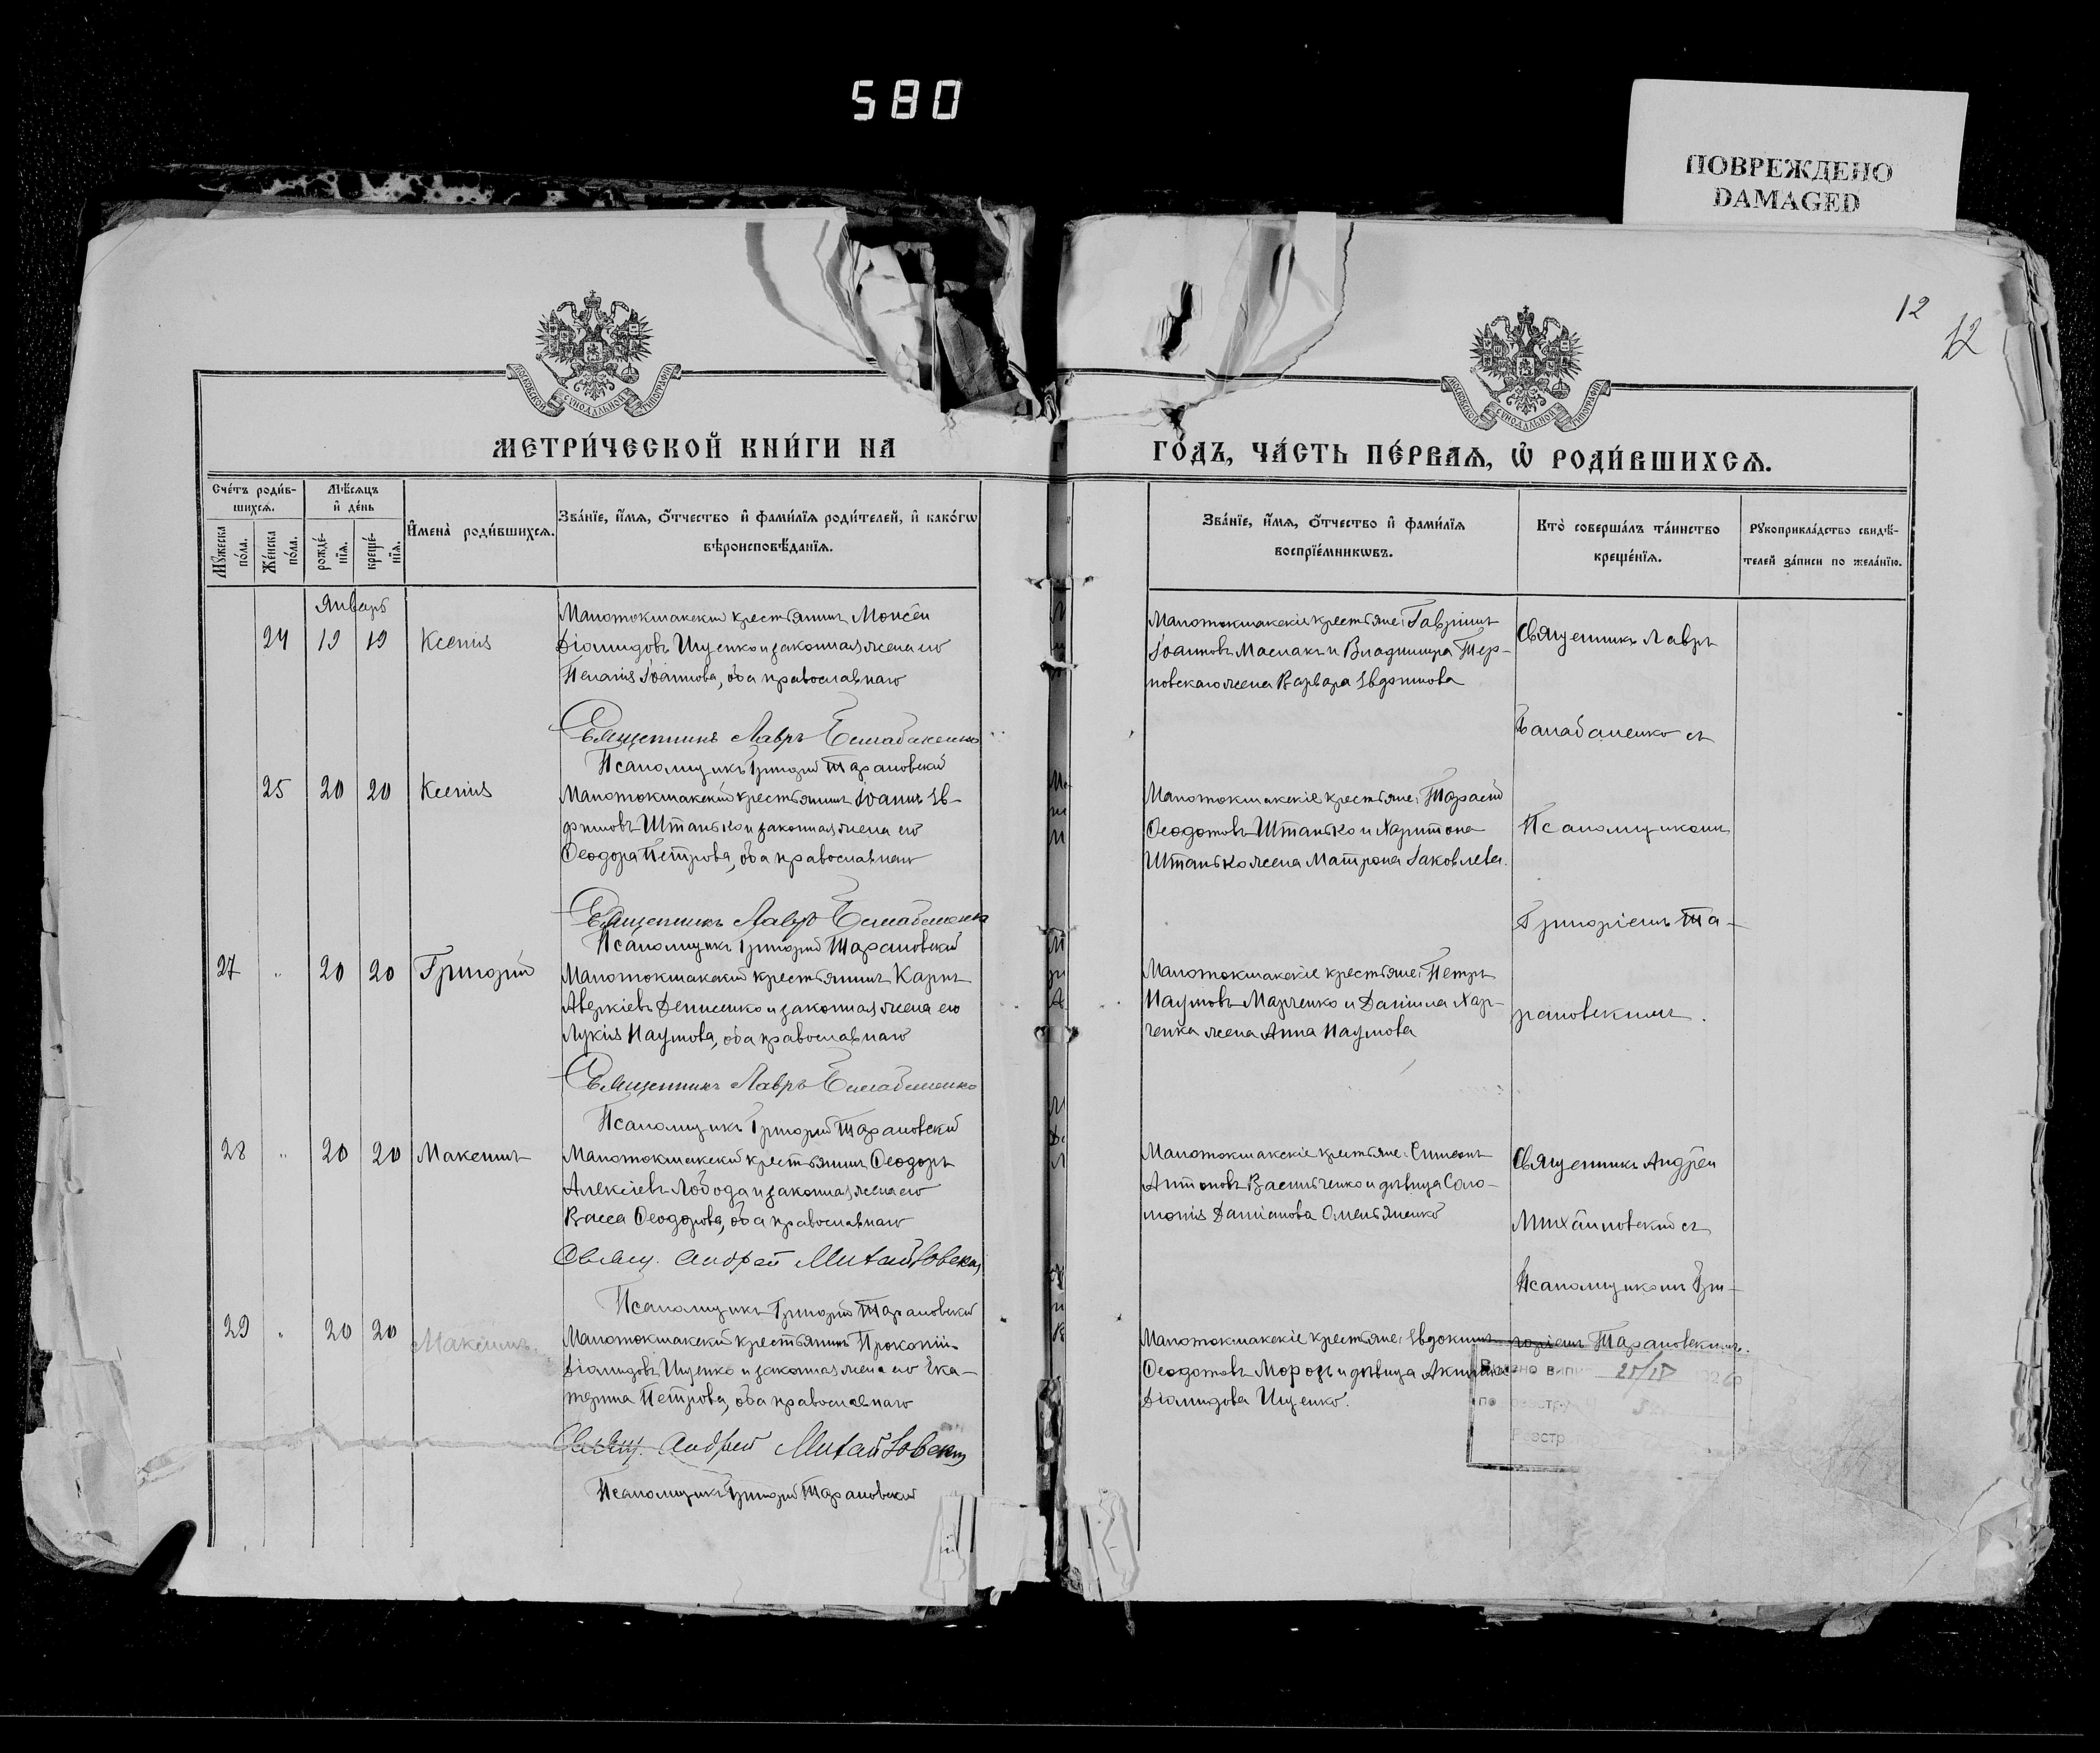 580
ПОВРЕЖДЕНО
DAMAGED
12
12
МОСКОВСКОЙ СУНОДАЛЬНОЙ ТИПОГРАФІИ
МОСКОВСКОЙ СУНОДАЛЬНОЙ ТИПОГРАФІИ
МЕТРИ́ЧЕСКОЙ КНИ́ГИ НА
ГО́ДЪ, ЧА́СТЬ ПЕ́РВАѦ, Ѡ҆ РОДИ́ВШИХСѦ.
Сче́тъ роди́в-
шихсѧ.
Мѣ́сѧцъ
и҆ де́нь
Мꙋ́жеска по́ла.
Же́нска по́ла.
рожде́-
нїѧ.
креще́-
нїѧ.
И҆мена̀ роди́вшихсѧ.
Зва́нїе, и҆́мѧ, ѻ҆́тчество и҆ фами́лїѧ роди́телей, и҆ како́гѡ
вѣроисповѣ́данїѧ.
Зва́нїе, и҆́мѧ, ѻ҆́тчество и҆ фами́лїѧ
воспрїе́мникѡвъ.
Кто̀ соверша́лъ та́инство
креще́нїѧ.
Рꙋкоприкла́дство свидѣ́-
телей за́писи по жела́нїю.
Январь
24 19 19 Ксенія
Малотокмакскій крестьянинъ Моисей
Діомидовъ Ищенко и законная жена его
Пелагія Іоаннова, оба православнаго
Священникъ Лавръ Балабаненко
Псаломщикъ Григорій Тарановскій
Малотокмакскіе крестьяне: Гавріилъ
Іоанновъ Маслакъ и Владиміра Тер-
новскаго жена Варвара Евдокимова
Священникъ Лавръ
Балабаненко съ
25 20 20 Ксенія
Малотокмакскій крестьянинъ Іоаннъ Ев-
фимовъ Штанько и законная жена его
Ѳеодора Петрова, оба православнаго
Священникъ Лавръ Балабаненко
Псаломщикъ Григорій Тарановскій
Малотокмакскіе крестьяне: Тарасій
Ѳеодотовъ Штанько и Харитона
Штанько жена Матрона Іаковлева.
Псаломщикомъ
Григоріемъ Та-
27 " 20 20 Григорій
Малотокмакскій крестьянинъ Карпъ
Аверкіевъ Денисенко и законная жена его
Лукія Наумова, оба православнаго
Священникъ Лавръ Балабаненко
Псаломщикъ Григорій Тарановскій
Малотокмакскіе крестьяне: Петръ
Наумовъ Марченко и Даніила Хар-
ченка жена Анна Наумова
рановскимъ.
28 " 20 20 Максимъ
Малотокмакскій крестьянинъ Ѳеодоръ
Алексіевъ Лобода и законная жена его
Васса Ѳеодорова, оба православнаго
Свящ. Андрей Михайловскій
Псаломщикъ Григорій Тарановскій
Малотокмакскіе крестьяне: Симеонъ
Антоновъ Васильченко и дѣвица Соло-
монія Даміанова Омельяненко
Священникъ Андрей
Михайловскій съ
Псаломщикомъ Гри-
29 " 20 20 Максимъ.
Малотокмакскій крестьянинъ Прокопій
Діомидовъ Ищенко и законная жена его Ека-
терина Петрова, оба православнаго
Свящ. Андрей Михайловскій
Псаломщикъ Григорій Тарановскій
Малотокмакскіе крестьяне: Евдокимъ
Ѳеодотовъ Морозъ и дѣвица Акилина
Діомидова Ищенко.
горіемъ Тарановскимъ.